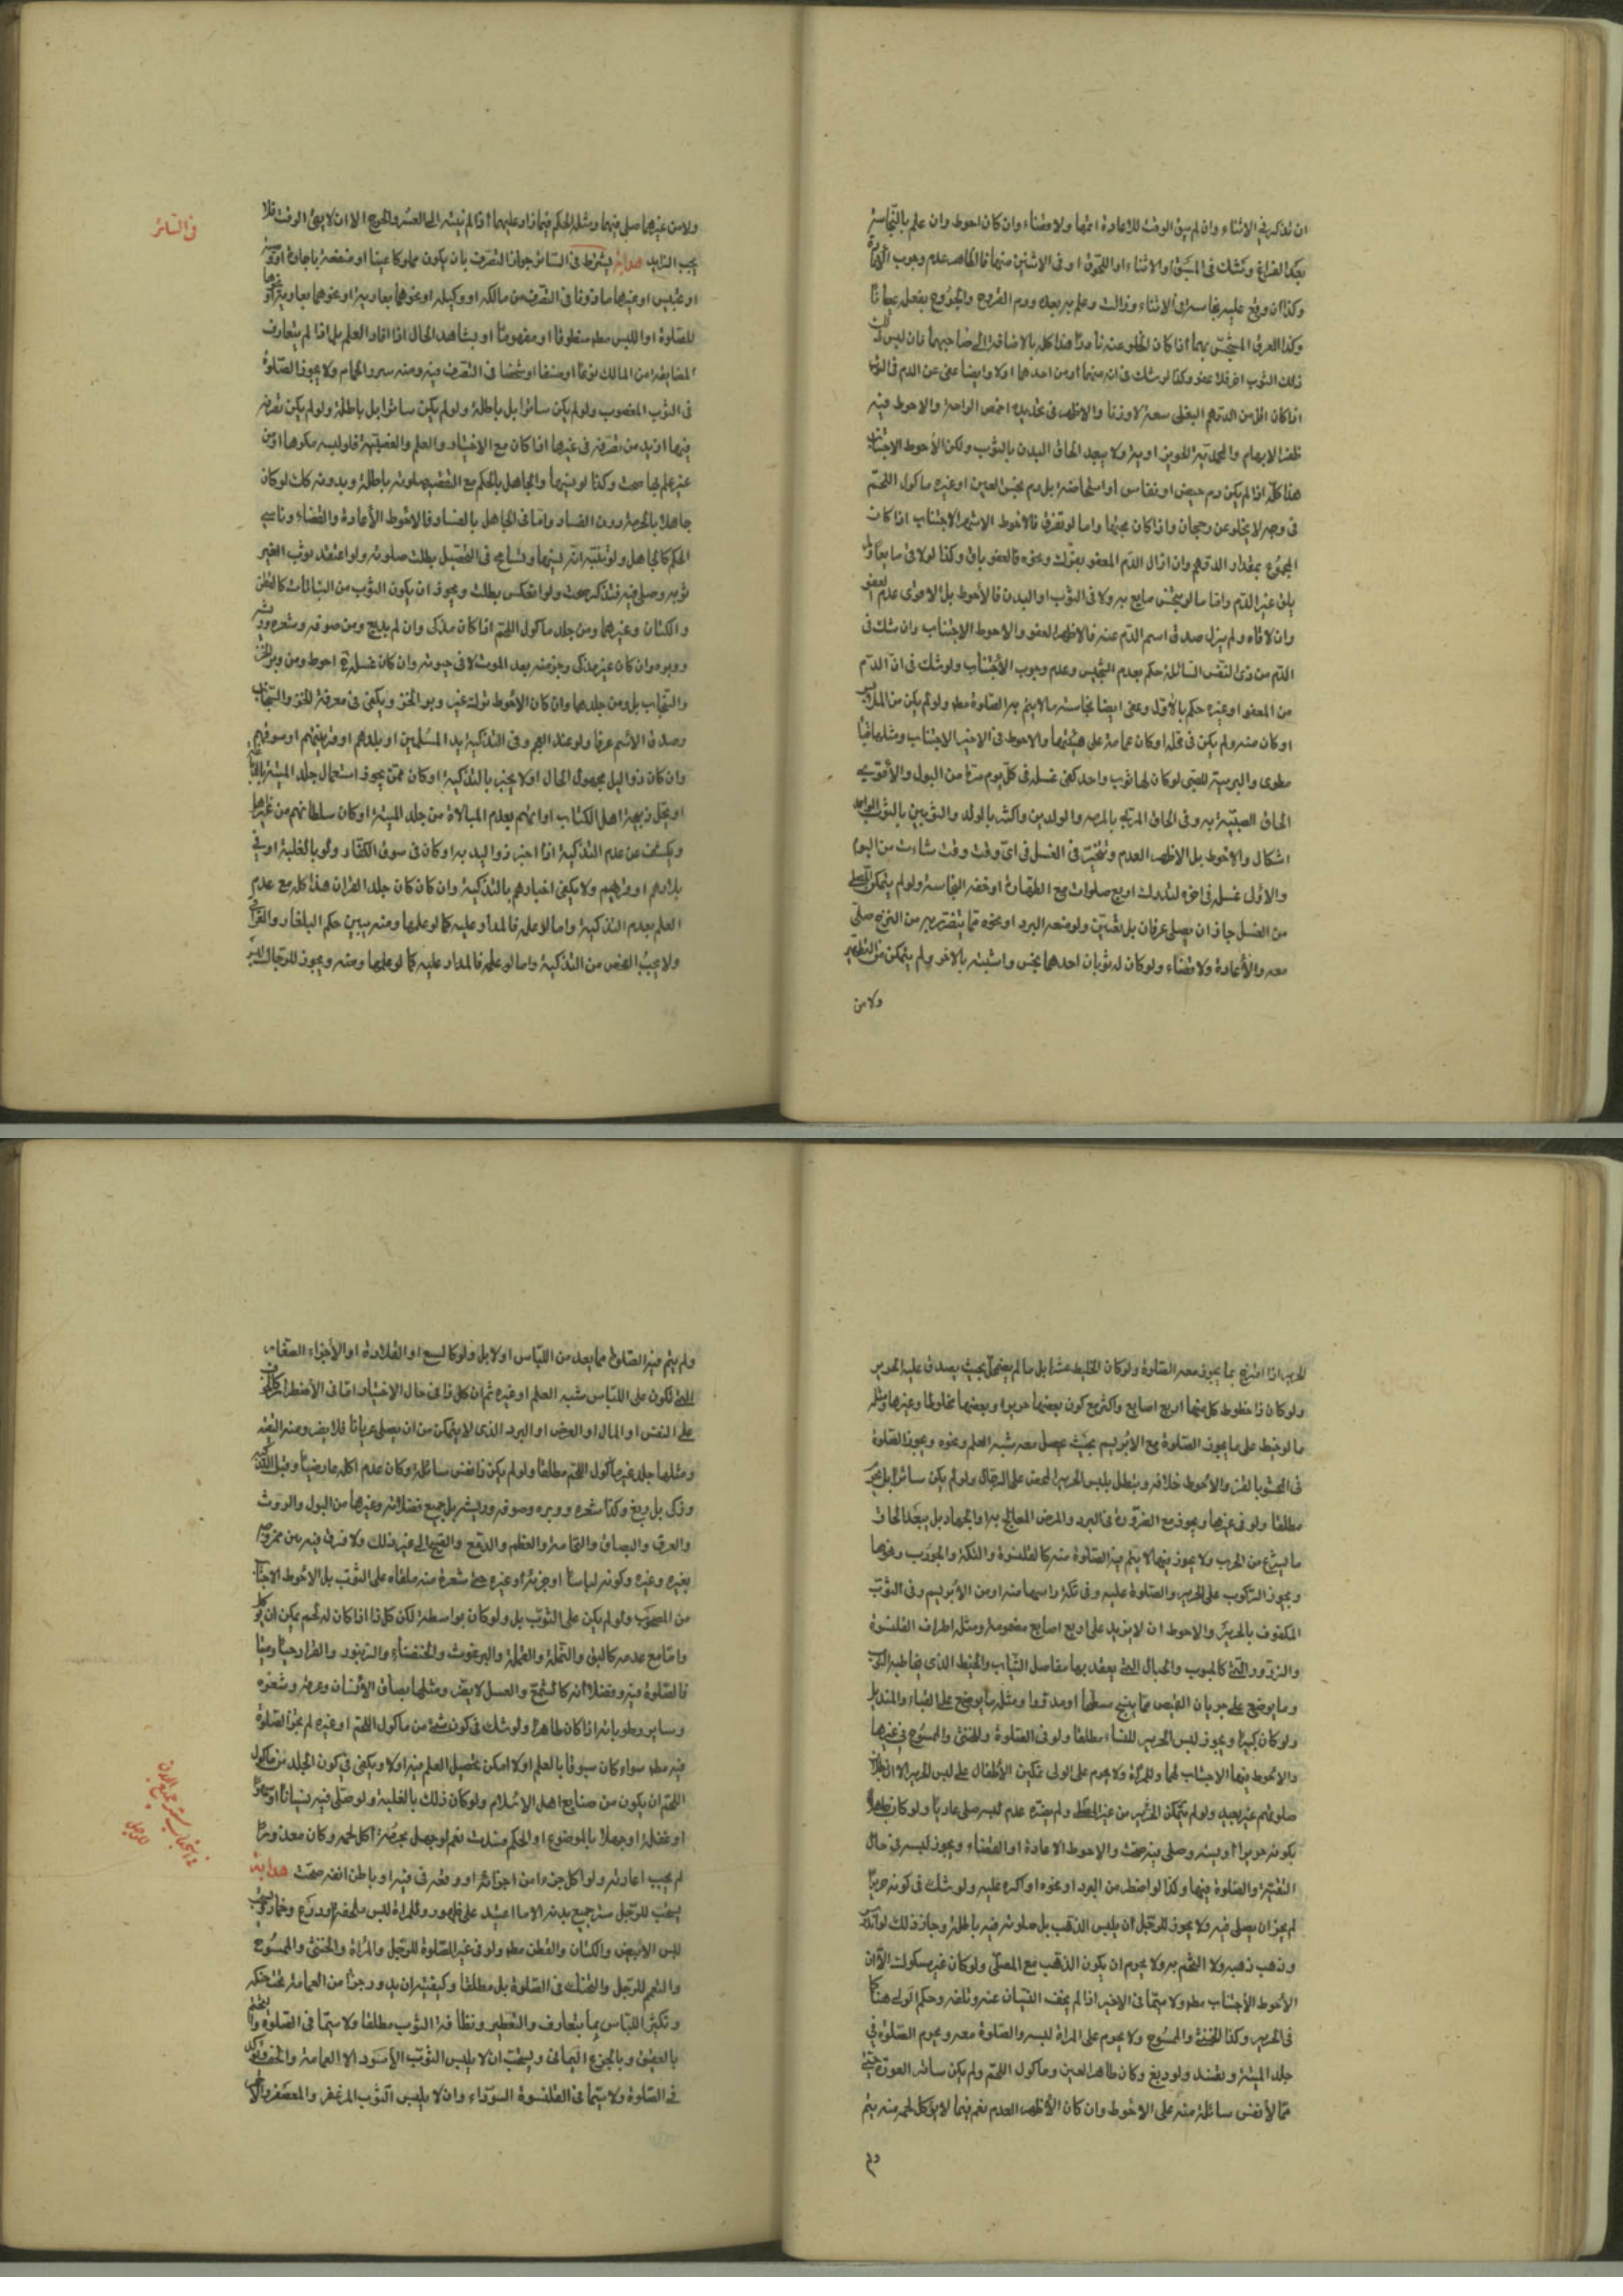 ان تذكر في الاثناء وان لم يبق الوقت للاعادة اتمها ولا قضاء وان كان احوط وان علم بالنجاسة
بعد الفراغ وشك في السبق او الاثناء او اللحوق او في الاثنين منها فالظاهر عدم وجوب الاعادة
وكذا ان وقع عليه نجاسة في الاثناء وزالت وعلم به بعد ودم القروح والجروح
وكذا العرق المتنجس بهما اذا كان كله بالاضافة الى صاحبهما فان ليس
ذلك الثوب اخر فلا عفو وكذا لو شك في انه منهما او من احدهما او لا وايضا عفى عن الدم في الثوب
اذا كان اقل من الدرهم البغلى سعة لا وزنا والاظهر في تحديده اخمص الراحة والاحوط فيه
ظفر الابهام ولا يبعد الحاق البدن بالثوب ولكن الاحوط الاجتناب
هذا كله اذا لم يكن دم حيض او نفاس او استحاضة بل دم نجس العين او غيره ماكول اللحم
في وجه لا يخلو عن رجحان واذا كان مجتمعا واما لو تفرق فالاحوط الاجتناب اذا كان
المجموع بمقدار الدرهم وان ازال الدم المعفو ونحوه فالعفو باق وكذا لو لاقى مايعا
غير الدم واما ما لو ينجس مايع به ولاقى الثوب او البدن فالأحوط بل الاقوى عدم العفو
وان لاقاه ولم يزل صدق اسم الدم عنه فالاظهر العفو والاحوط الاجتناب وان شك في
الدم من ذي النفس السائلة حكم بعدم التنجيس وعدم وجوب الأجتناب ولو شك في ان الدم
من المعفو او غيره حكم بالأول وعفى ايضا نجاسة ما لا يتم به الصلوة مطم ولو لم يكن من الملابس
او كان منه ولم يكن في محله او كان عمامة على هيئتها والاحوط في الاخير الاجتناب
مطوى والمربية للصبي لو كان لها ثوب واحد كفى غسله في كل يوم مرة من البول والأقوى
الحاق الصبية به وفي الحاق المربي بالمربية والولدين واكثر بالولد والثوبين بالثوب الواحد
اشكال والاحوط بل الاظهر العدم وتتخير في الغسل في اي وقت وقت شاءت من اليوم
والاولى غسله في اخره لتدرك اربع صلوات مع الطهارة او خفة النجاسة ولو لم يتمكن المصلي
من الغسل جاز ان يصلى عريان بل تعين ولو منعه البرد او نحوه مما يتضرر به من النزع صلى
معه والأعادة ولا قضاء ولو كان له ثوبان احدهما نجس واشتبه بالاخر ولم يتمكن من التطهير
ولا من
ولا من غيرهما صلى فيهما ومثله الحكم فيما زاد عليهما اذا لم ينته الى العسر والحرج الا ان لا يبقى الوقت فلا
يجب الزايد هداية يشترط في الساتر جواز التصرف بان يكون مملوكا عينا او منفعة باجارة او
او غيرهما ماذونا في التصرف من مالكه او وكيله او نحوهما بعارية او نحوهما
للصلوة او اللبس مطم منطوقا او مفهوما او بشاهد الحال اذا افاد العلم بل اذا لم يتعارف
المضايقة من المالك نوعا او صنفا او شخصا في التصرف فيه ومنه سير والحمام ولا يجوز الصلوة
في الثوب المغصوب ولو لم يكن ساترا بل باطلة ولو لم يكن ساترا بل باطلة ولو لم يكن تصرفه
فيها ازيد من تصرفه في غيرها اذا كان مع الاختيار والعلم والغصبية فلو لبسه مكرها او من
غير علم بها صحت وكذا لو نسيها والجاهل بالحكم مع التقصير صلوته باطلة وبدونه كان لو كان
جاهلا بالحرمة دون الفساد واما في الجاهل بالفساد فالاحوط الأعادة والقضاء وناسي
الحكم كالجاهل ولو تسامح في التحصيل بطلت صلوته ولو اعتقد ثوب الغير
ثوبه وصلى فيه فتذكر صحت ولو انعكس بطلت ويجوز ان يكون الثوب من النباتات كالقطن
والكتان وغيرهما ومن جلد ماكول اللحم اذا كان مذكى وان لم يدبغ ومن صوفه وشعره وريشه
ووبره وان كان غير مذكى وجز منه بعد الموت لا في حيوته وان كان غسله احوط ومن وبر الخز
والسنجاب بل ومن جلدهما وان كان الاحوط ترك غير وبر الخز ويكفى في معرفة الخز والسنجاب
وصدق الاسم عرفا ولو عند العجم وفي التذكية يد المسلمين او بلدهم او قريتهم او سوقهم
وان كان ذو اليد مجهول الحال او لا يخبر بالتذكية او كان ممن يجوز استعمال جلد الميتة بالدباغ
او يحل ذبيحة اهل الكتاب او اتهم بعدم المبالاة من جلد الميتة او كان سلطانهم من غير اهل
ويكشف عن عدم التذكية اذا اخبر ذو اليد به او كان في سوق الكفار ولو بالغلبة او في
بلادهم او قريتهم ولا يكفى اخبارهم بالتذكية وان كان كان جلد القران هذا كله مع عدم
العلم بعدم التذكية واما لا على فالمدار عليه كما لو علمها ومنه يبين حكم البلغار
ولا يجب الفحص من التذكية واما لو علم فالمدار عليه كما لو علمها ومنه ويجوز للرجال لبس
في الساتر
الحرير اذا امتزج بما يجوز معه الصلوة ولو كان الخليط عشرا بل ما لم يضمحل بحيث يصدق عليه الحرير
ولو كان ذا خطوط كل منها اربع اصابع واكثر مع كون بعضها حريرا وبعضها مخلوطا وغيرها ومثله
ما لو خيط على ما يجوز الصلوة مع الابريسم بحيث يحصل معه شبه العلم ونحوه ويجوز الصلوة
في المحشو بالقز والأحوط خلافه ويبطل بلبس الحرير المحض على الرجال ولو لم يكن ساترا بل يحرم
مطلقا ولو في غيرها ويجوز مع الضرورة في البرد والمرض المعالج به او الجهاد بل يبعد الحاق
ما ليشرع من الحرب ولا يجوز فيما لا يتم فيه الصلوة منه كالقلنسوة والتكة والجورب ونحوها
ويجوز الركوب على الحرير والصلوة عليه وفي تكة راسها منه او من الابريسم وفي الثوب
المكفوف بالحرير والاحوط ان لا يزيد على اربع اصابع مضمومة ومثله اطراف القلنسوة
والزرور التي كالحبوب والحبال التي يعقد بها مفاصل الثياب والخيط الذي يخاط به الثوب
وما يوضع على جربان القميص مما ينسج مسطحا او مدورا ومثله ما يوضع على القباء والمنديل
ولو كان كبيرا ويجوز لبس الحرير للنساء مطلقا ولو في الصلوة وللخنثى والممسوح في غيرها
والاحوط فيها الاجتناب لهما وللمراة ولا يحرم على الولى تمكين الأطفال على لبس الحرير
صلوتهم غير بعيد ولو لم يتمكن الا من غير الحظر ولم يضره عدم لبسه صلى عاريا ولو كان جاهلا
بكونه حريرا او نسيه وصلى فيه صحت والاحوط الاعادة او القضاء ويجوز لبسه في حال
التقية والصلوة فيها وكذا لو اضطر من البرد او نحوه او اكره عليه ولو شك في كونه حريرا
لم يجز ان يصلى فيه ولا يجوز للرجل ان يلبس الذهب بل صلوته فيه باطلة وجاز ذلك
وذهب ذهبه ولا التختم به ولا يحرم ان يكون الذهب مع المصلى ولو كان غير مسكوك الا ان
الأحوط الأجتناب مطم ولا سيما في الاخير اذا لم يخف النسيان عنه وتلفه وحكم المولى هنا كما
في الحرير وكذا الخنثى والممسوح ولا يحرم على المراة لبسه والصلوة معه ويحرم الصلوة في
جلد الميتة ويفسد ولو دبغ وكان طاهر العين وماكول اللحم ولم يكن ساتر العورة حتى
مما لا نفس سائلة منه على الاحوط وان كان الأظهر العدم نعم فيما لا يؤكل لحمه منه يتم
ولم يتم فيه الصلوة مما يعد من اللباس او لا بل ولو كالسبع او القلادة او الأجزاء الصغار
التي تكون على اللباس شبه العلم او غيره ثم ان كل ذا في حال الاختيار اما في الأضطرار كالخوف
على النفس او المال او العرض او البرد الذي لا يتمكن من ان يصلى عريانا فلا يضر ومنه التقية
ومثلها جلد غير ماكول اللحم مطلقا ولو لم يكن ذا نفس سائلة وكان عدم اكله عارضيا وقبل التذكية
وذكى بل دبغ وكذا شعره ووبره وصوفه وريشه بل جميع فضلاته وغيرها من البول والروث
والعرق والبصاق والنخامة والعظم والدمع والقيح الى غير ذلك ولا فرق فيه بين ممزوجه
بغيره وغيره وكونه لباسا او جزءه او غيره حتى شعرة منه ملقاه على الثوب بل الاحوط الاجتناب
من المصحوب ولو لم يكن على الثوب بل ولو كان بواسطة لكن كل ذا اذا كان له لحم يمكن ان يؤكل
واما مع عدمه كالبق والنملة والقملة والبرغوث والخنفساء والزنبور والقراد حيا وميتا
فالصلوة فيه وفضلاته كالشمع والعسل لا يضر ومثلها بصاق الأنسان وعرقه وشعره
وساير رطوباته اذا كان طاهرا ولو شك في كون شيء من ماكول اللحم او غيره لم يجز الصلوة
فيه مطم سواء كان مسبوقا بالعلم او لا امكن تحصيل العلم فيه او لا ويكفى في كون الجلد من ماكول
اللحم ان يكون من صنايع اهل الاسلام ولو كان ذلك بالغلبة ولو صلى فيه نسيانا او سهوا
او غفلة او جهلا بالموضوع او الحكم فسدت نعم لو جهل بحرمة اكل لحمه وكان معذورا
لم يجب اعادته ولو اكل جزءا من اجزائه او وقعه في فيه او باطن انفه صحت هداية
يستحب للرجل ستر جميع بدنه الا ما اعتيد على ظهوره وللمراة لبس ملحفة ودرع وخمار
لبس الابيض والكتان والقطن مطم ولو في غير الصلوة للرجل والمراة والخنثى والممسوح
والتعمم للرجل والتحنك في الصلوة بل مطلقا وكيفيته ان يدور جزءا من العمامة تحت حنكه
وتكثير اللباس بما يتعارف والتعطير ونظافة الثوب مطلقا ولا سيما في الصلوة والتختم
بالعقيق وبالجزع اليماني ويستحب ان لا يلبس الثوب الأسود الا العمامة والخف
في الصلوة ولا سيما في القلنسوة السوداء وان لا يلبس الثوب المزعفر والمعصفر